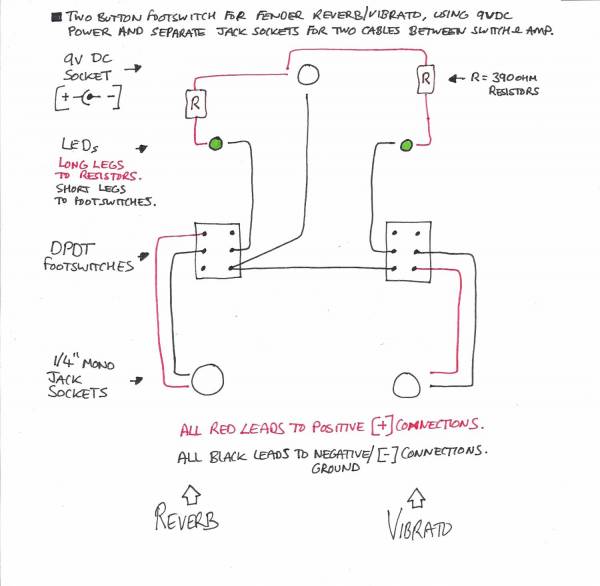 ■ TWO BUTTON FOOTSWITCH FOR FENDER REVERB/VIBRATO, USING 9VDC
POWER AND SEPARATE JACK SOCKETS FOR TWO CABLES BETWEEN SWITCH & AMP.
9V DC
SOCKET
[+ -]
R
R
R = 390 OHM
RESISTORS
LEDs
LONG LEGS
TO RESISTORS.
SHORT LEGS
TO FOOTSWITCHES.
DPDT
FOOTSWITCHES
1/4" MONO
JACK
SOCKETS
ALL RED LEADS TO POSITIVE [+] CONNECTIONS.
ALL BLACK LEADS TO NEGATIVE/[-] CONNECTIONS.
GROUND
REVERB
VIBRATO